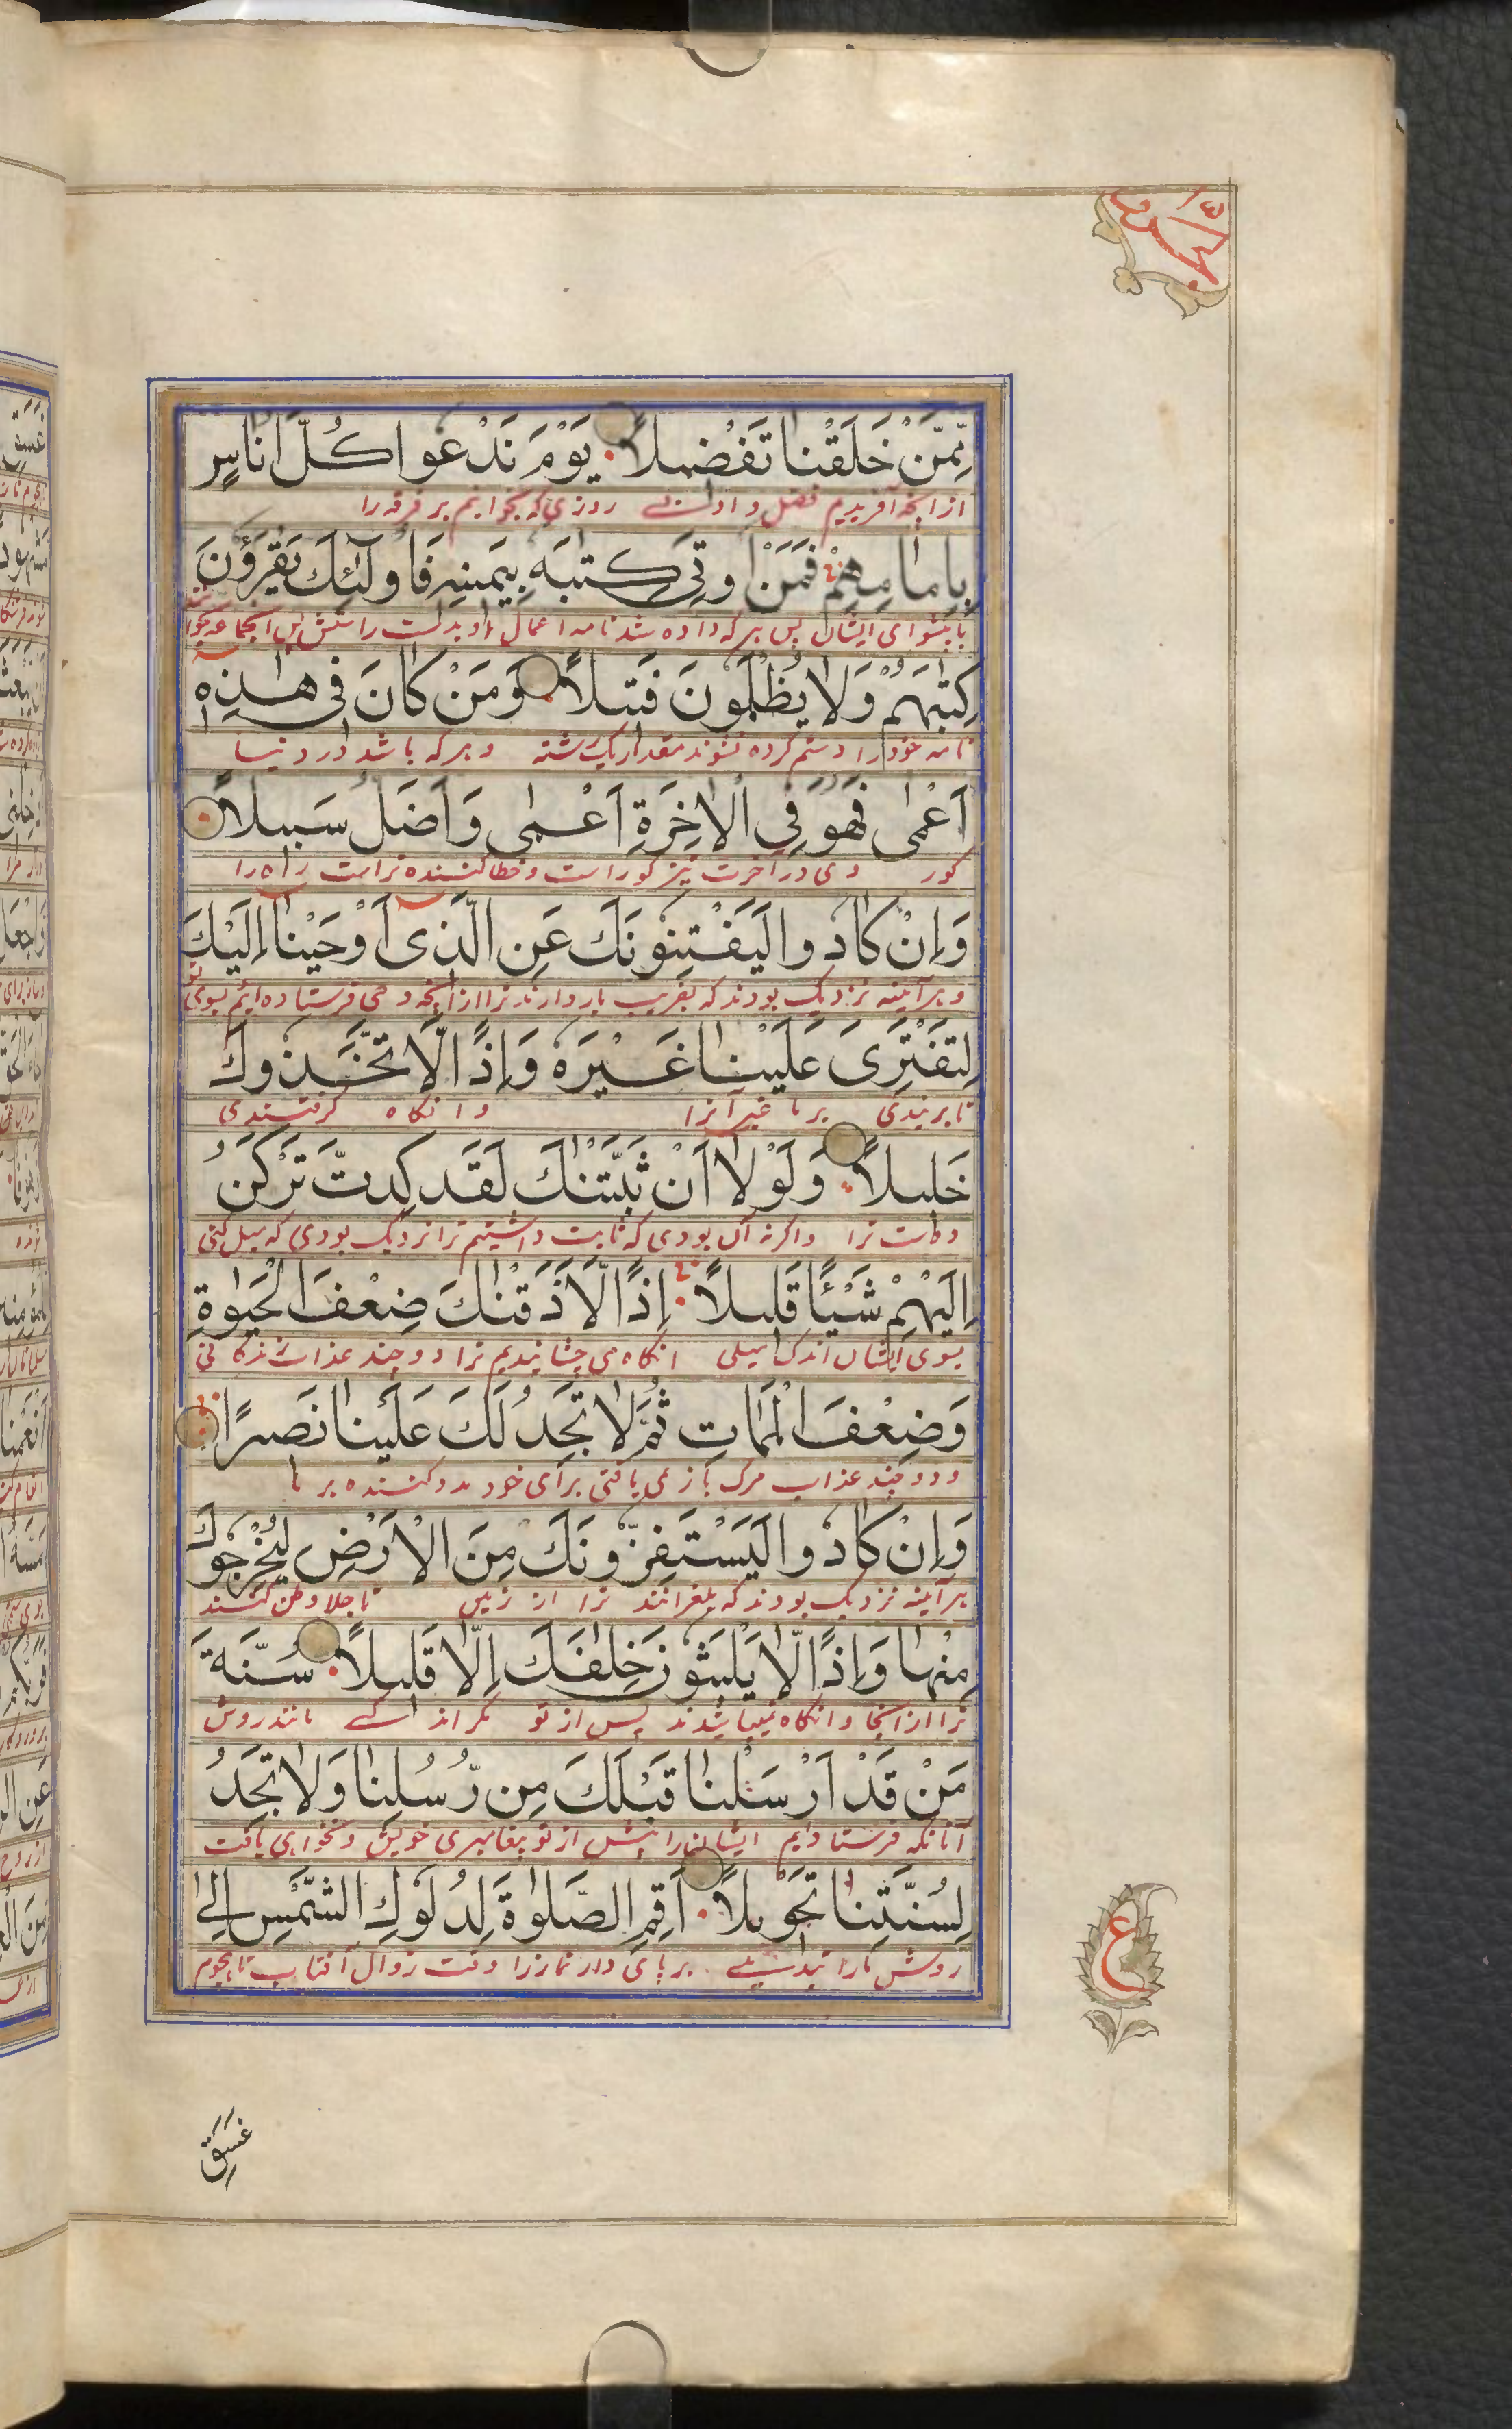 مِّمَّنْ خَلَقْنَا تَفْضِيلًا يَوْمَ نَدْعُوا كُلَّ أُنَاسٍ
روزی که بخوانیم هر فرقه را
بِإِمَامِهِمْ فَمَنْ أُوتِيَ كِتٰبَهُ بِيَمِينِهِ فَأُولٰئِكَ يَقْرَؤُنَ
با پیشوای ایشان پس هر که داده شد نامه اعمال او بدست راستش پس آنجماعه بخوانند
كِتٰبَهُمْ وَلَا يُظْلَمُونَ فَتِيلًا وَمَنْ كَانَ فِي هٰذِهِ
نامه خود را و ستم کرده نشوند مقدار یک رشته و هر که باشد در دنیا
أَعْمٰى فَهُوَ فِي الْاٰخِرَةِ أَعْمٰى وَأَضَلُّ سَبِيلًا
کور وی در آخرت نیز کور است و خطا کننده تر است راه را
وَإِنْ كَادُوا لَيَفْتِنُونَكَ عَنِ الَّذِي أَوْحَيْنَا إِلَيْكَ
و هر آینه نزدیک بودند که بفریب باز دارند ترا از آنچه وحی فرستاده ایم بسوی تو
لِتَفْتَرِيَ عَلَيْنَا غَيْرَهُ وَإِذًا لَّاتَّخَذُوكَ
تا بربندی بر ما غیر آنرا و آنگاه گرفتندی
خَلِيلًا وَلَوْلَا أَنْ ثَبَّتْنٰكَ لَقَدْ كِدتَّ تَرْكَنُ
دوست ترا و اگر نه آن بودی که ثابت داشتیم ترا نزدیک بودی که میل کنی
إِلَيْهِمْ شَيْئًا قَلِيلًا إِذًا لَّأَذَقْنٰكَ ضِعْفَ الْحَيٰوةِ
بسوی ایشان اندک میلی آنگاه می چشانیدیم ترا دو چند عذاب زندگانی
وَضِعْفَ الْمَمَاتِ ثُمَّ لَا تَجِدُ لَكَ عَلَيْنَا نَصِيرًا
و دو چند عذاب مرگ باز نمی یافتی برای خود مدد کننده بر ما
وَإِنْ كَادُوا لَيَسْتَفِزُّونَكَ مِنَ الْأَرْضِ لِيُخْرِجُوكَ
هر آینه نزدیک بودند که بلغزانند ترا از زمین تا جلا وطن کنند
مِنْهَا وَإِذًا لَّا يَلْبَثُونَ خِلٰفَكَ إِلَّا قَلِيلًا سُنَّةَ
ترا از آنجا و آنگاه نمیباشدند پس از تو مگر اندکے مانند روش
مَنْ قَدْ أَرْسَلْنَا قَبْلَكَ مِن رُّسُلِنَا وَلَا تَجِدُ
آنانکه فرستادیم ایشان را پیش از تو پیغامبری خویش و نخواهی یافت
لِسُنَّتِنَا تَحْوِيلًا أَقِمِ الصَّلٰوةَ لِدُلُوكِ الشَّمْسِ إِلٰى
روش ما را تبدیلے برپای دار نماز را وقت زوال آفتاب تا هجوم
ع
غَسَقِ